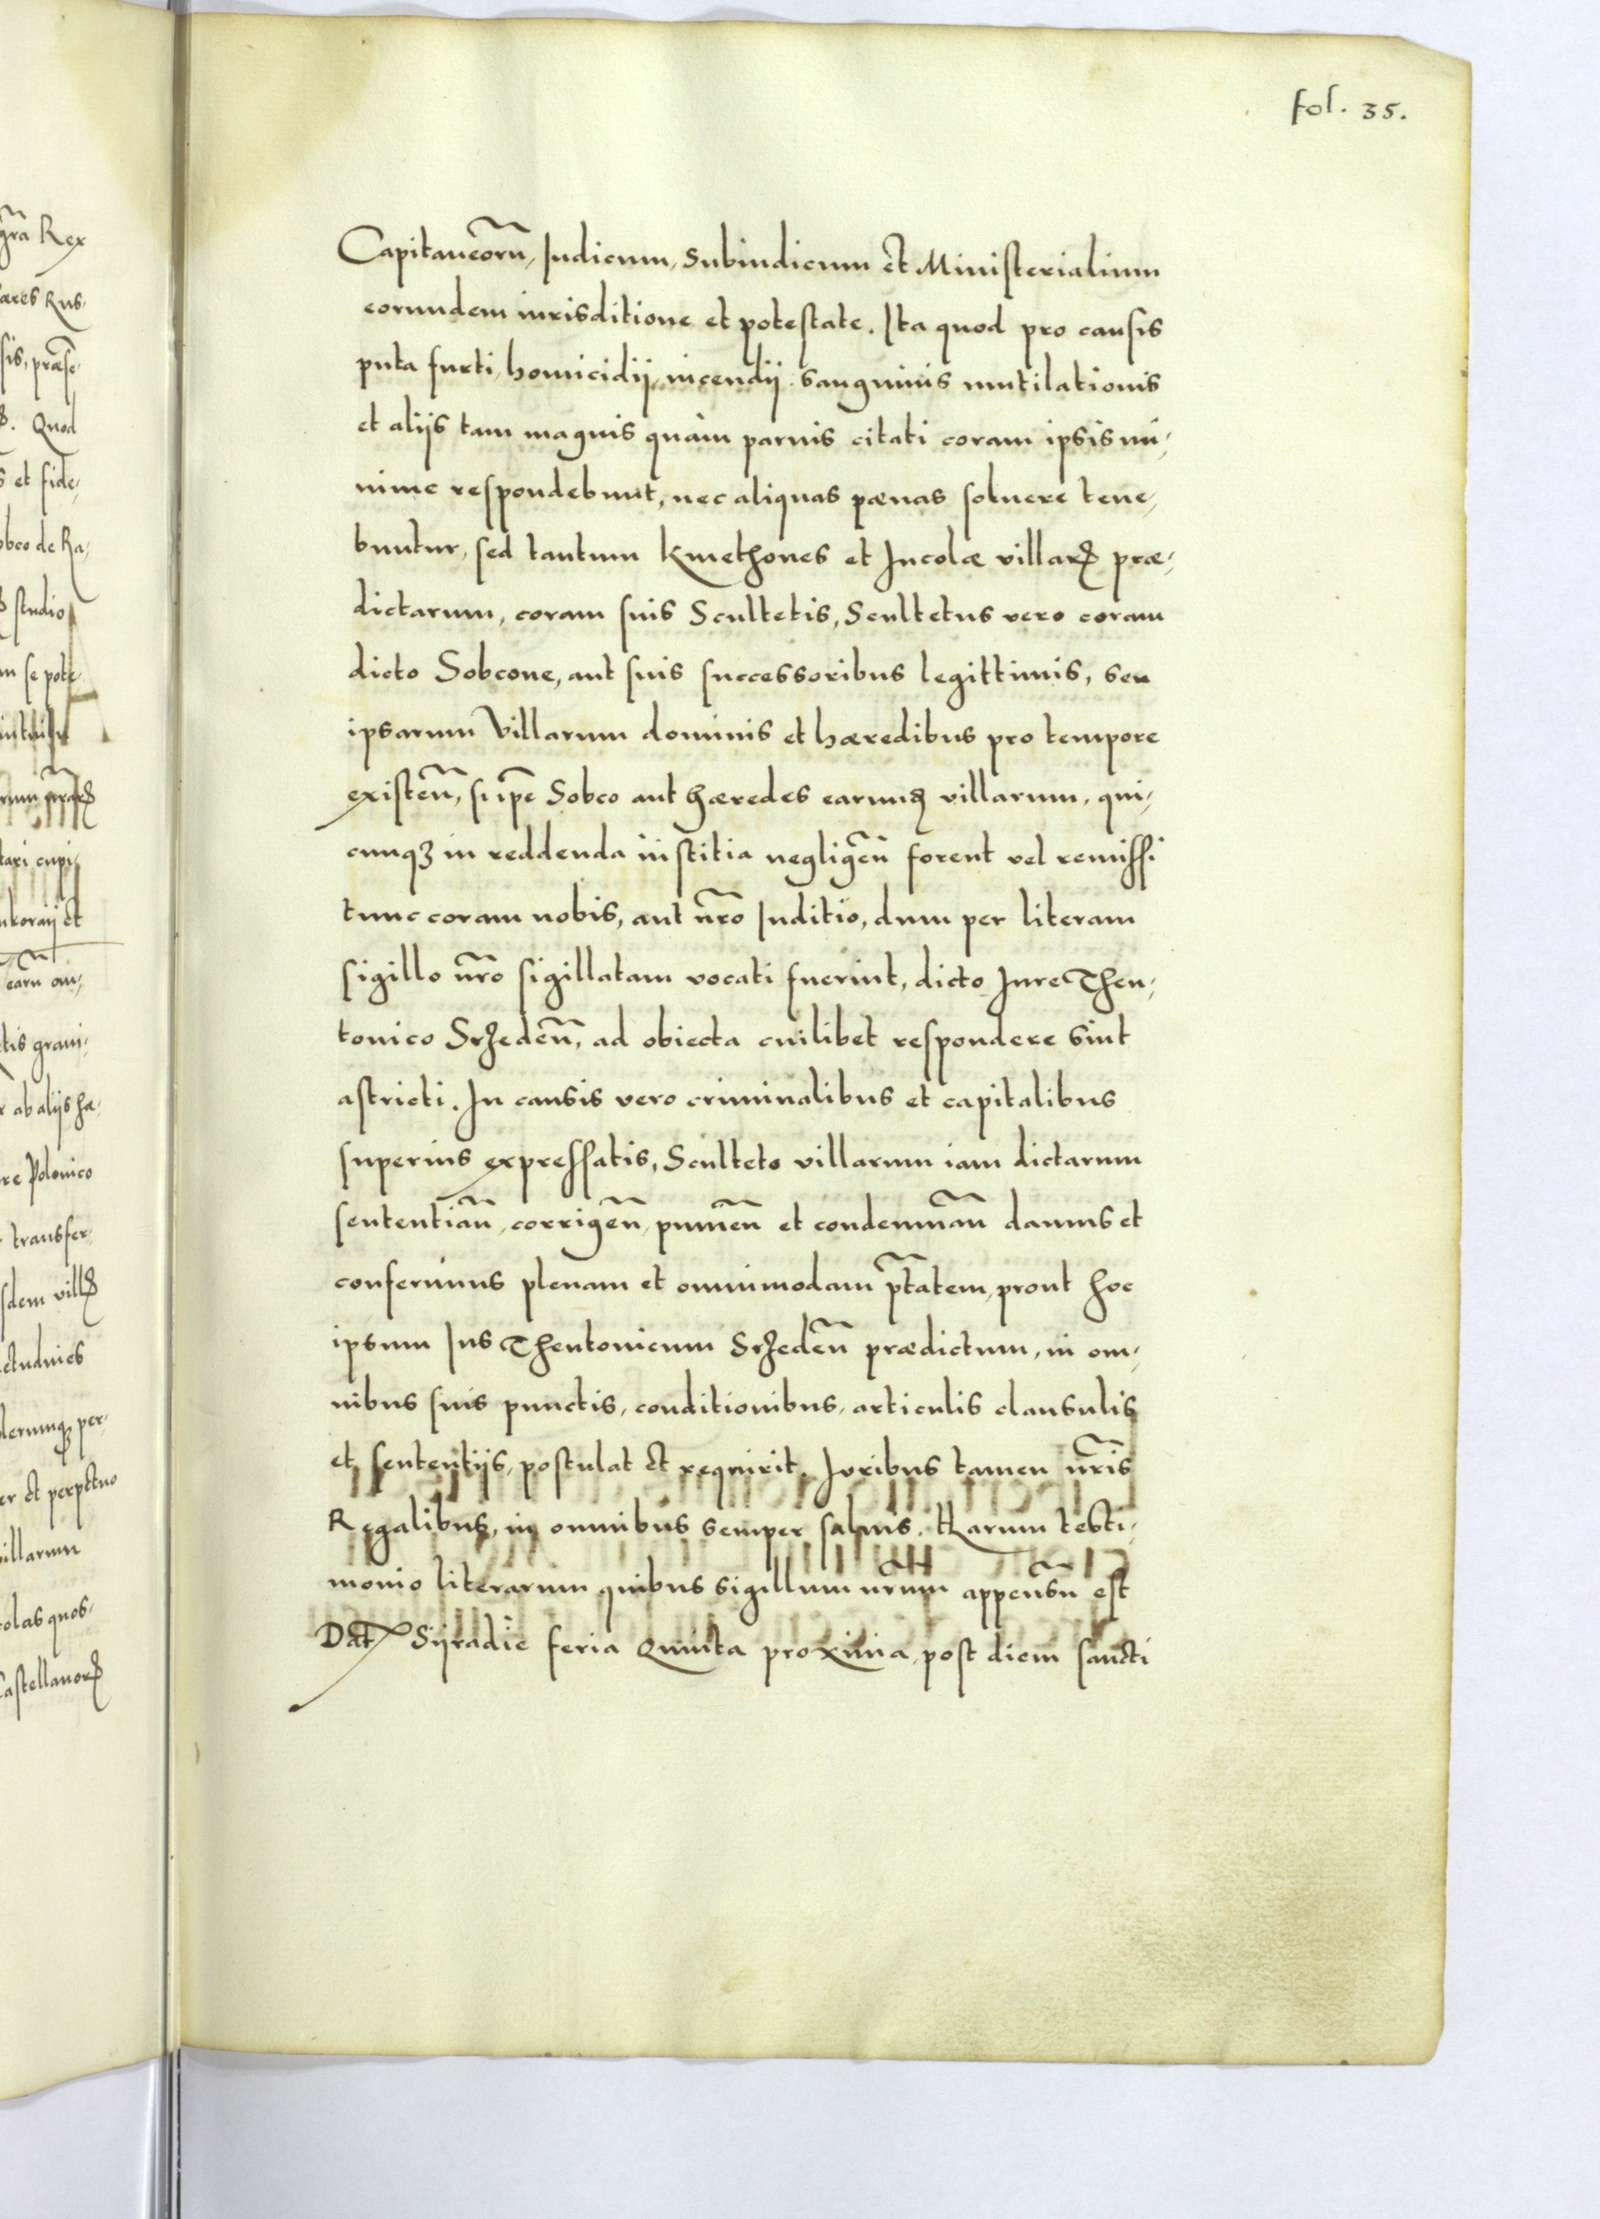 fol. 35.
Capitaneorũ, Judicum, Subiudicum et Ministerialium
eorundem iurisditione et potestate. Ita quod pro causis
puta furti, homicidii, incendii, sanguinis mutilationis
et aliis tam magnis quàm paruis citati coram ipsis mi-
nime respondebunt, nec aliquas pœnas soluere tene-
buntur, sed tantum Kmethones et Incolæ villarꝝ præ-
dictarum, coram suis Scultetis, Scultetus vero coram
dicto Sobcone, aut suis successoribus legittimis, seu
ipsarum Villarum dominis et hæredibus pro tempore
existeñ, si ip̃e Sobco aut hæredes earunꝫ villarum, qui-
cunqꝫ in reddenda iustitia negligeñ forent vel remissi
tunc coram nobis, aut nr̃o Iuditio, dum per literam
sigillo nr̃o sigillatam vocati fuerint, dicto Iure Theu-
tonico Srzedeñ, ad obiecta cuilibet respondere sint
astricti. In causis vero criminalibus et capitalibus
superius expressatis, Sculteto villarum iam dictarum
sententiañ, corrigeñ, punieñ et condemnañ damus et
conferimus plenam et omnimodam ptãtem, prout hoc
ipsum Ius Theutonicum Srzedeñ prædictum, in om-
nibus suis punctis, conditionibus, articulis clausulis
et sententiis, postulat et requirit. Iuribus tamen nr̃is
Regalibus, in omnibus semper saluis. Harum testi-
monio literarum quibus sigillum nr̃um appensũ est
Datꝭ Siradie feria Quinta proxima, post diem sancti
gr̃a Rex
Quod
et fide-
obco de Ra-
studio
m se pote-
earũ om-
tis graui-
ab aliis hæ-
re Polonico
transfer-
sdem villꝝ
per-
er et perpetuo
villarum
colas quos-
Castellanorꝝ